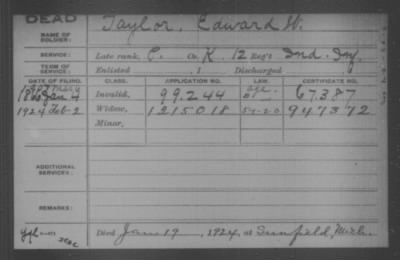 DEAD
NAME OF SOLDIER: Taylor, Edward W.
SERVICE: Late rank, C. Co. K, 12 Reg't Ind. Inf.
TERM OF SERVICE: Enlisted , 1 Discharged , 1
DATE OF FILING. CLASS. APPLICATION NO. LAW. CERTIFICATE NO.
1907 Mar
Jan 4 Invalid, 99.244 67.387
1924 Feb-2 Widow, 1215018 5-1-20 947372
Minor,
ADDITIONAL SERVICES:
REMARKS:
Died Jan 19, 1924, at Sunfield, Mich.